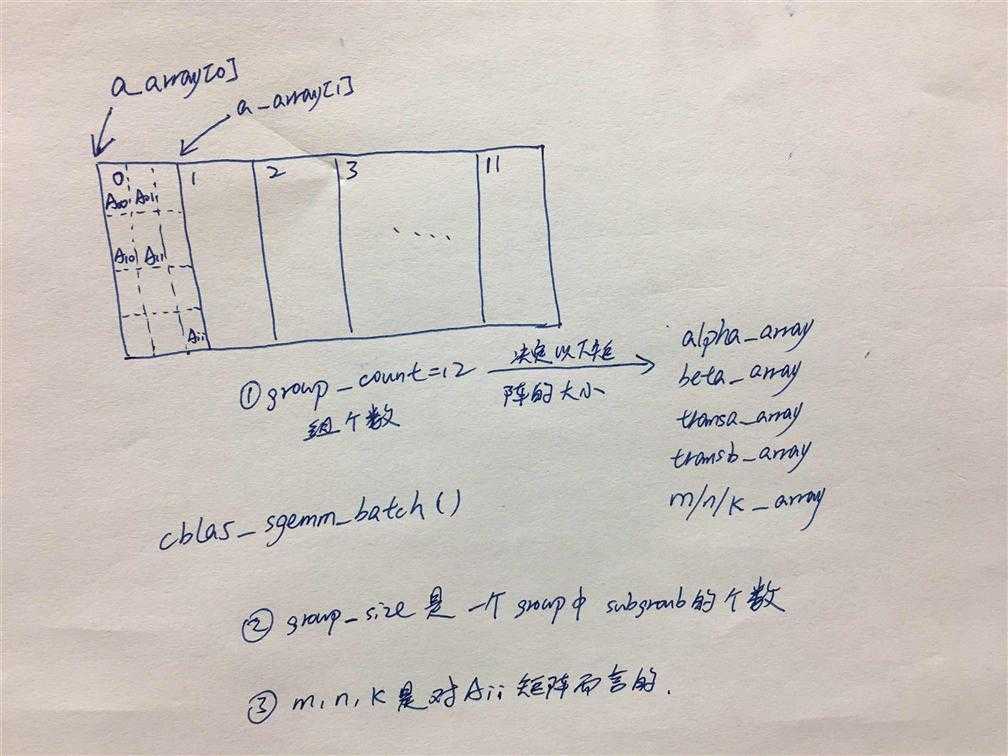 a_array[0]
a_array[1]
0 1 2 3 .... 11
A00 A01
A10 A11
Aii
①group_count=12 决定以下矩
组个数 阵的大小
alpha_array
beta_array
transa_array
transb_array
m/n/k_array
cblas_sgemm_batch()
②group_size是一个group中subgroub的个数
③m,n,k是对Aii矩阵而言的.